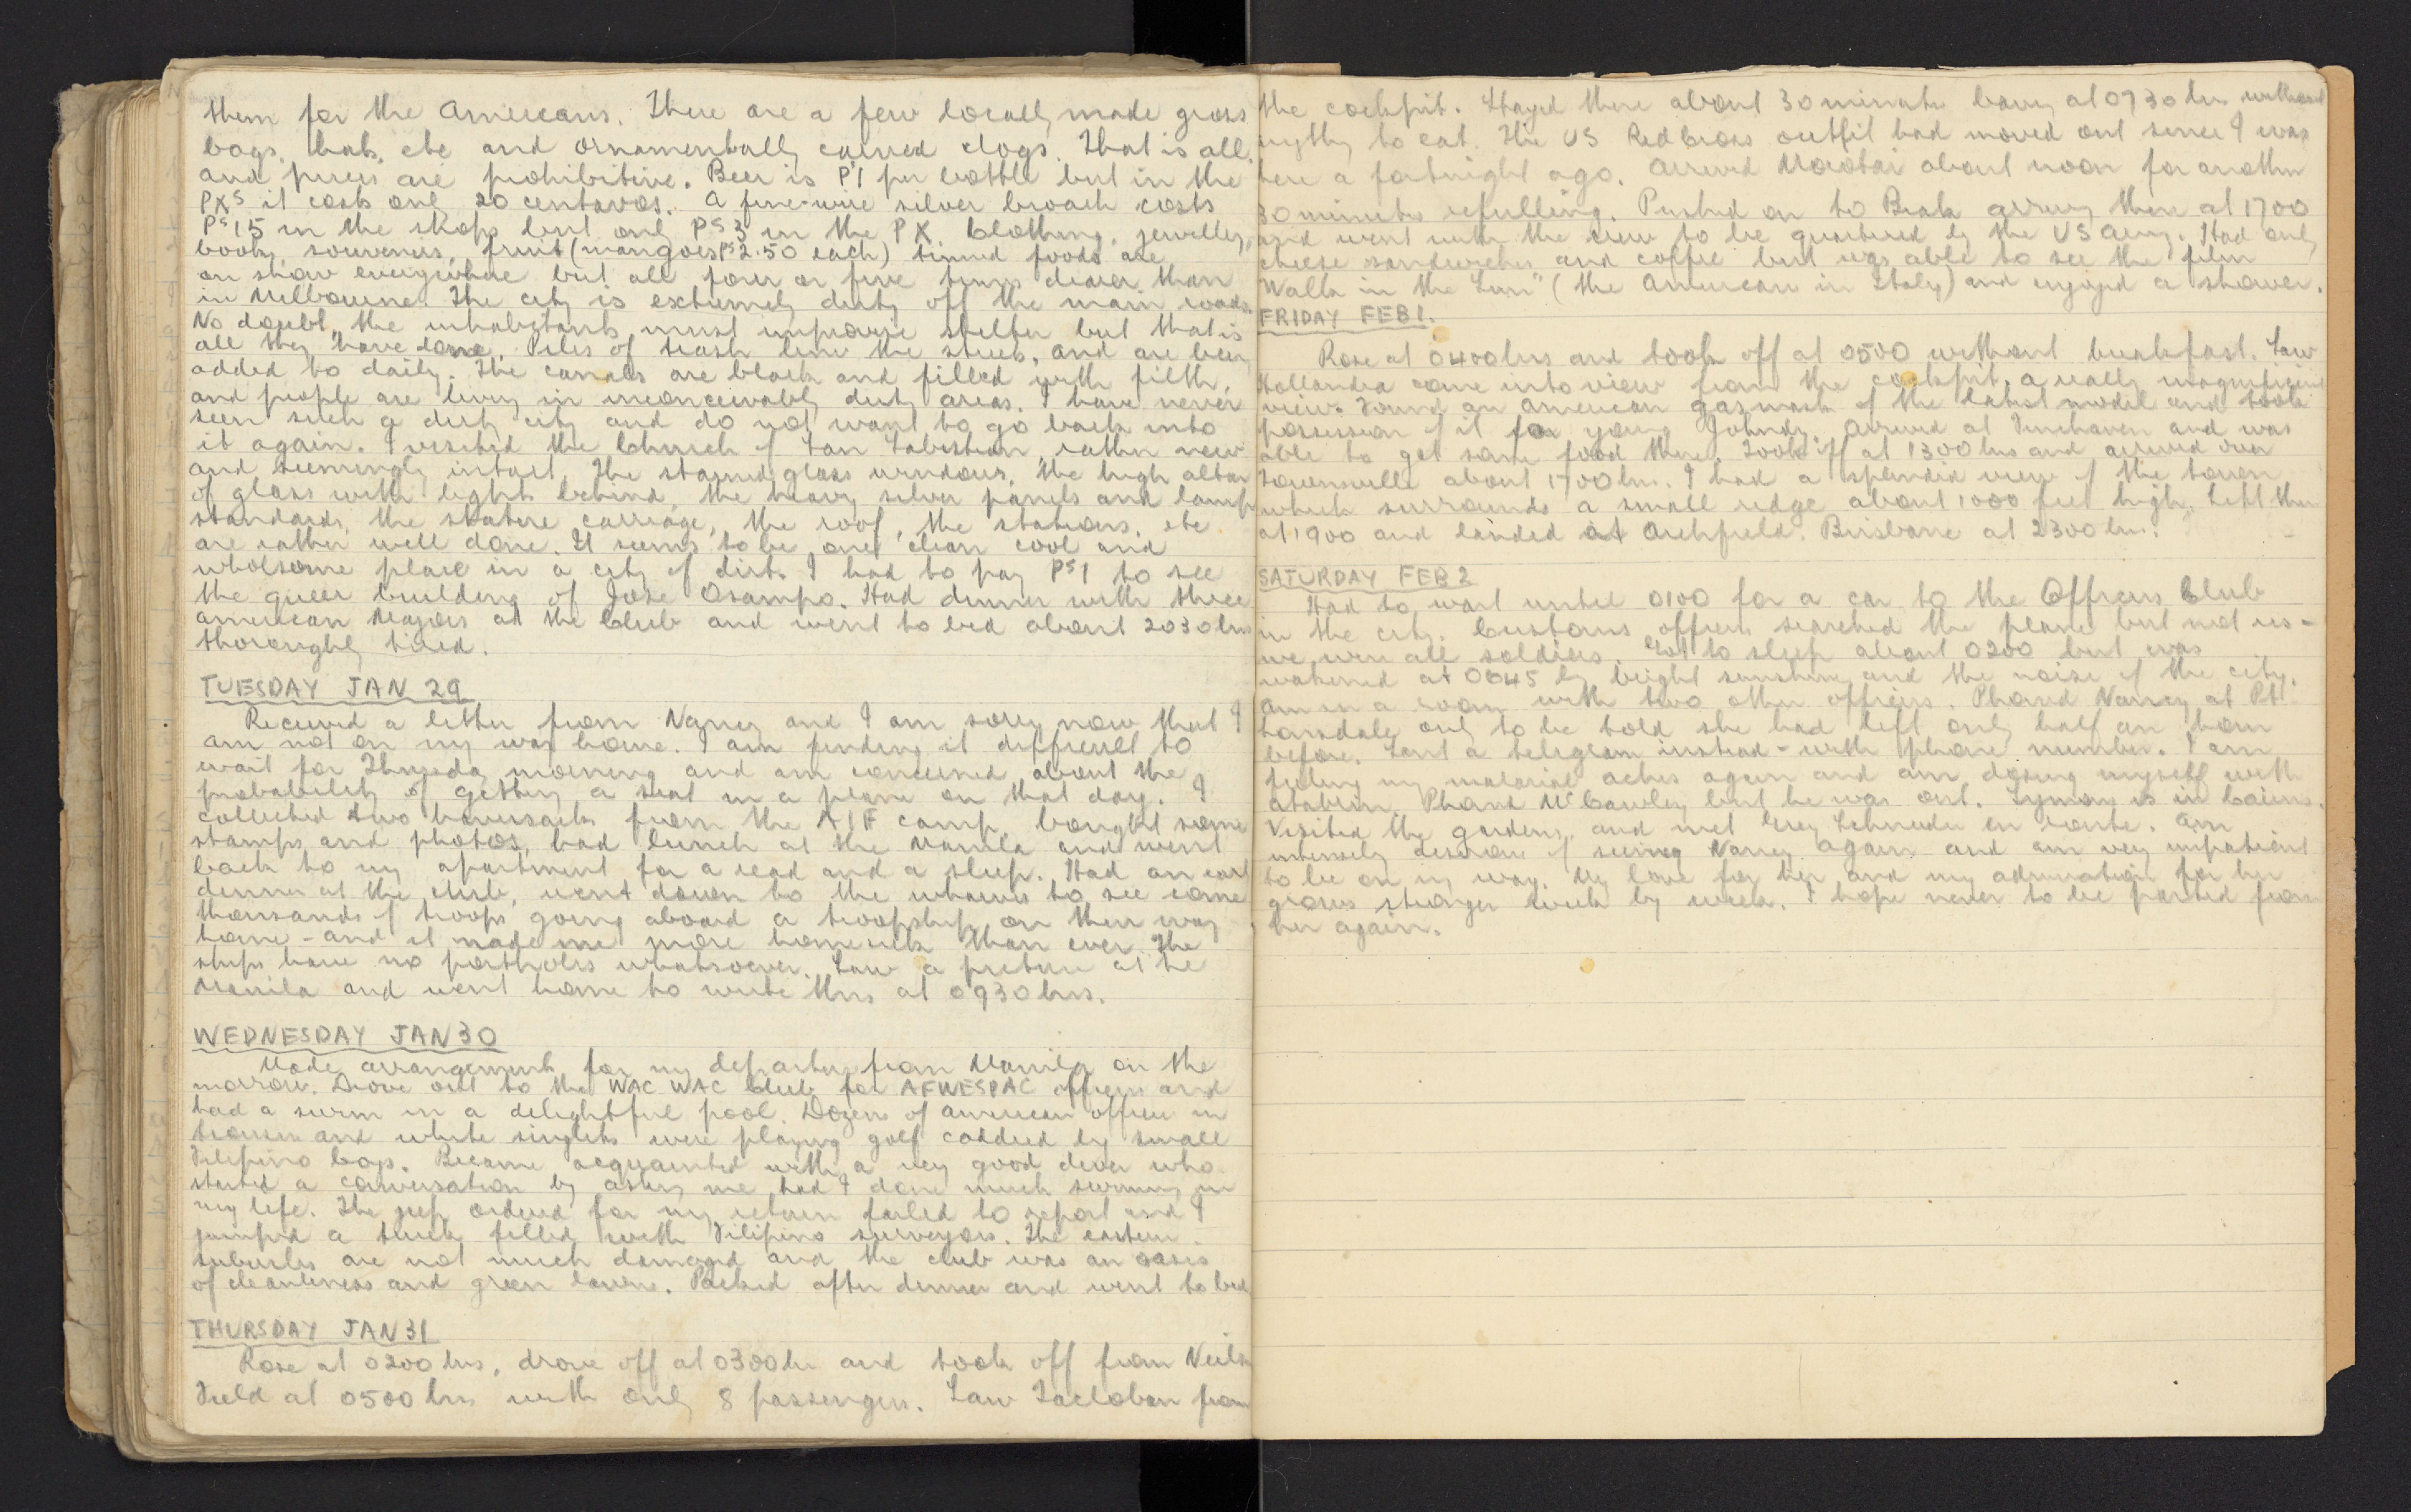 them for the Americans. There are a few locally made grass
bags, hats, etc and ornamentally carved clogs. That is all,
and prices are prohibitive. Beer is P1 per bottle but in the
PXs it costs only 20 centavos. A fine-wire silver broach costs
Ps15 in the shops but only Ps3 in the PX. Clothing, jewellery,
books, souvenirs, fruit (mangoes Ps2.50 each) tinned foods are
on show everywhere but all four or five times dearer than
in Melbourne. The city is extremely dirty off the main roads.
No doubt, the inhabitants must improvise shelter but that is
all they have done. Piles of trash line the streets, and are being
added to daily. The canals are black and filled with filth,
and people are living in inconceivably dirty areas. I have never
seen such a dirty city and do not want to go back into
it again. I visited the Church of San Sabistian, rather new
and seemingly intact. The stained glass windows, the high altar
of glass with lights behind, the heavy silver panels and lamp
standards, the statue carriage, the roof, the stations, etc
are rather well done. It seems to be one clean cool and
wholesome place in a city of dirt. I had to pay Ps1 to see
the queer building of Jose Ocampo. Had dinner with three
American Majors at the Club and went to bed about 2030 hrs
thoroughly tired.
TUESDAY JAN 29
Received a letter from Nancy and I am sorry now that I
am not on my way home. I am finding it difficult to
wait for Thursday morning and am concerned about the
probability of getting a seat in a plane on that day. I
collected two haversacks from the AIF camp, bought some
stamps and photos, had lunch at the Manila and went
back to my apartment for a read and a sleep. Had an early
dinner at the club, went down to the wharves to see some
thousands of troops going aboard a troopship on their way
home - and it made me more homesick than ever. The
ships have no portholes whatsoever. Saw a picture at the
Manila and went home to write this at 0930 hrs.
WEDNESDAY JAN 30
Made arrangements for my departure from Manila on the
morrow. Drove out to the WAC WAC Club for AFWESPAC officers and
had a swim in a delightful pool. Dozens of American officers in
trousers and white singlets were playing golf caddied by small
Filipino boys. Became acquainted with a very good diver who
started a conversation by asking me had I done much swimming in
my life. The jeep ordered for my return failed to report and I
jumped a truck filled with Filipino surveyors. The eastern
suburbs are not much damaged and the club was an oasis
of cleanliness and green lawns. Packed after dinner and went to bed
THURSDAY JAN 31
Rose at 0200 hrs, drove off at 0300 hr and took off from Neilson
Field at 0500 hrs with only 8 passengers. Saw Tacloban from
the cockpit. Stayed there about 30 minutes leaving at 0930 hrs without
anything to eat. The US Red Cross outfit had moved out since I was
here a fortnight ago. Arrived Morotai about noon for another
30 minutes refuelling. Pushed on to Biak arriving there at 1700
and went with the crew to be quartered by the US army. Had only
cheese sandwiches and coffee but was able to see the film
"Walk in the Sun" (the American in Italy) and enjoyed a shower.
FRIDAY FEB 1.
Rose at 0400 hrs and took off at 0500 without breakfast. Saw
Hollandia come into view from the cockpit, a really magnificent
view. Found an American gasmask of the latest model and took
possession of it for young Johndy. Arrived at Finchaven and was
able to get some food there. Took off at 1300 hrs and arrived over
Townsville about 1700 hrs. I had a splendid view of the town
which surrounds a small ridge about 1000 feet high. Left there
at 1900 and landed at Archfield. Brisbane at 2300 hrs.
SATURDAY FEB 2
Had to wait until 0100 for a car to the Officers Club
in the city. Customs officers searched the plane but not us -
we were all soldiers. Got to sleep about 0200 but was
wakened at 0645 by bright sunshine and the noise of the city.
Am in a room with two other officers. Phoned Nancy at Pt
Lonsdale only to be told she had left only half an hour
before. Sent a telegram instead - with phone number. I am
feeling my malarial aches again and am dosing myself with
atabrin. Phoned McCawley but he was out. Symons is in Cairns.
Visited the gardens, and met Greg Schneider en route. Am
intensely desirous of seeing Nancy again and am very impatient
to be on my way. My love for her and my admiration for her
grows stronger week by week. I hope never to be parted from
her again.